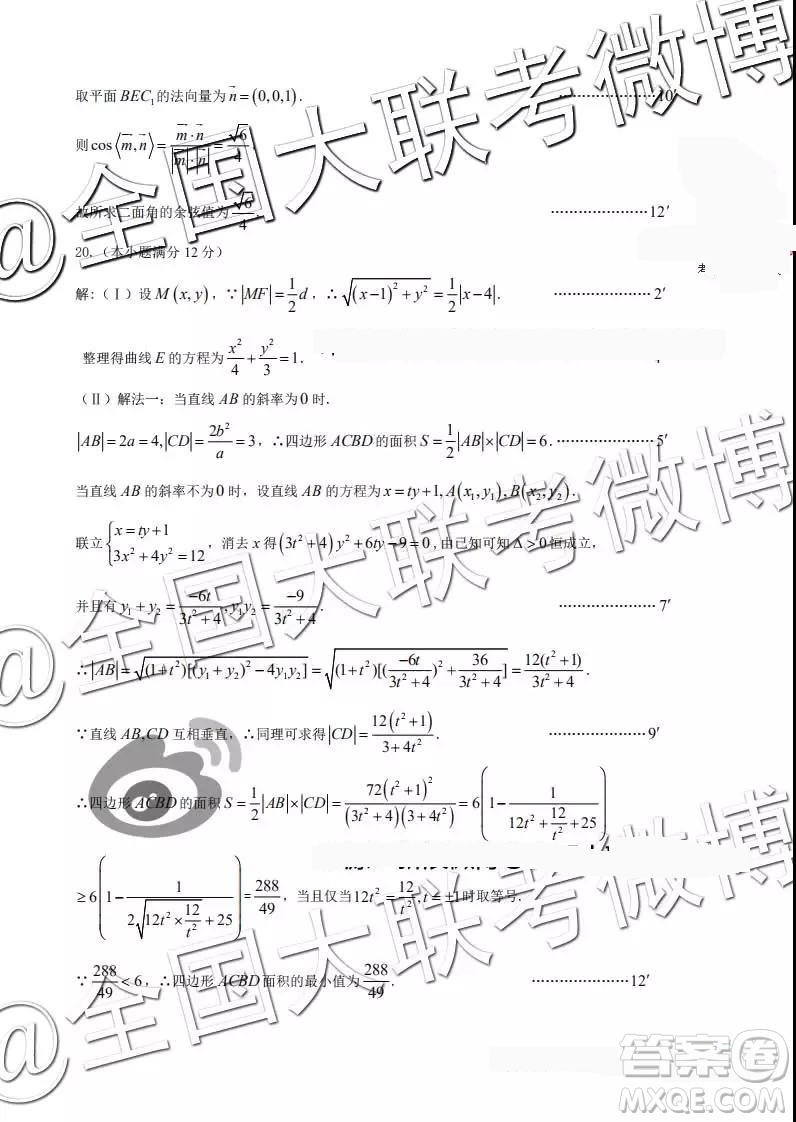 取平面 BEC₁ 的法向量为 n⃗ = (0,0,1). ··················10′
则 cos⟨m⃗, n⃗⟩ = (m⃗·n⃗)/(|m⃗|·|n⃗|) = √6/4.
故所求二面角的余弦值为 √6/4. ···················12′
20.（本小题满分 12 分）
解:(Ⅰ) 设 M(x, y), ∵|MF| = 1/2 d, ∴√((x−1)²+y²) = 1/2|x−4|. ···················2′
整理得曲线 E 的方程为 x²/4 + y²/3 = 1.
(Ⅱ) 解法一: 当直线 AB 的斜率为 0 时.
|AB| = 2a = 4, |CD| = 2b²/a = 3, ∴四边形 ACBD 的面积 S = 1/2|AB|×|CD| = 6. ···················5′
当直线 AB 的斜率不为 0 时, 设直线 AB 的方程为 x = ty+1, A(x₁, y₁), B(x₂, y₂).
联立 {x = ty+1, 3x²+4y² = 12, 消去 x 得 (3t²+4)y²+6ty−9 = 0, 由已知可知 Δ > 0 恒成立,
并且有 y₁+y₂ = −6t/(3t²+4), y₁y₂ = −9/(3t²+4). ···················7′
∴|AB| = √((1+t²)[(y₁+y₂)²−4y₁y₂]) = √((1+t²)[(−6t/(3t²+4))²+36/(3t²+4)]) = 12(t²+1)/(3t²+4).
∵直线 AB,CD 互相垂直, ∴同理可求得 |CD| = 12(t²+1)/(3+4t²). ···················9′
∴四边形 ACBD 的面积 S = 1/2|AB|×|CD| = 72(t²+1)²/((3t²+4)(3+4t²)) = 6(1 − 1/(12t²+12/t²+25))
≥ 6(1 − 1/(2√(12t²×12/t²)+25)) = 288/49, 当且仅当 12t² = 12/t², t = ±1 时取等号.
∵288/49 < 6, ∴四边形 ACBD 面积的最小值为 288/49. ···················12′
@全国大联考微博
@全国大联考微博
答案卷
MXQE.COM